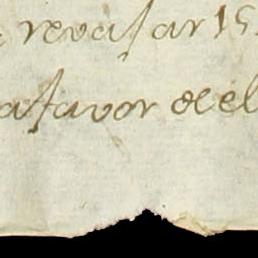 revaſar 15
afavor del